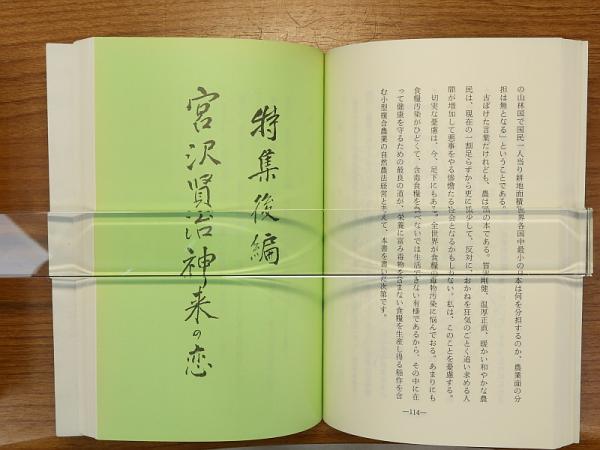 の山林国で国民一人当り耕地面積世界各国中最小の日本は何を分担するのか、農業面の分
担は無となる」ということである。
古ぼけた言葉だけれども、農は国の本である。質実剛健、温厚正直、暖かい和やかな農
民は、現在の一割足らずから更に減少して、反対に、おかねを狂気のごとく追い求める人
間が増加して悪事をやる惨憺たる社会となるかもしれない。私は、このことを憂慮する。
切実な憂慮は、今、足下にもある。全世界が食糧の毒物汚染に悩んでおる。あまりにも
食糧汚染がひどくて、含毒食糧を食べないでは生活できない有様であるから、その中に在
って健康を守るための最良の道が、栄養に富み毒物を含まない食糧を生産し得る稲作を含
む小型複合農業の自然農法経営と考えて、本書を書いた次第です。
—114—
特集後編
宮沢賢治神来の恋